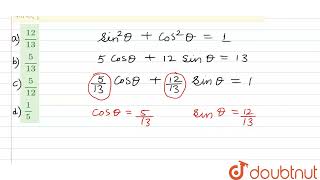 a) 12/13
b) 5/13
c) 5/12
d) 1/5
sin²θ + cos²θ = 1
5 cosθ + 12 sinθ = 13
5/13 cosθ + 12/13 sinθ = 1
cosθ = 5/13 sinθ = 12/13
doubtnut